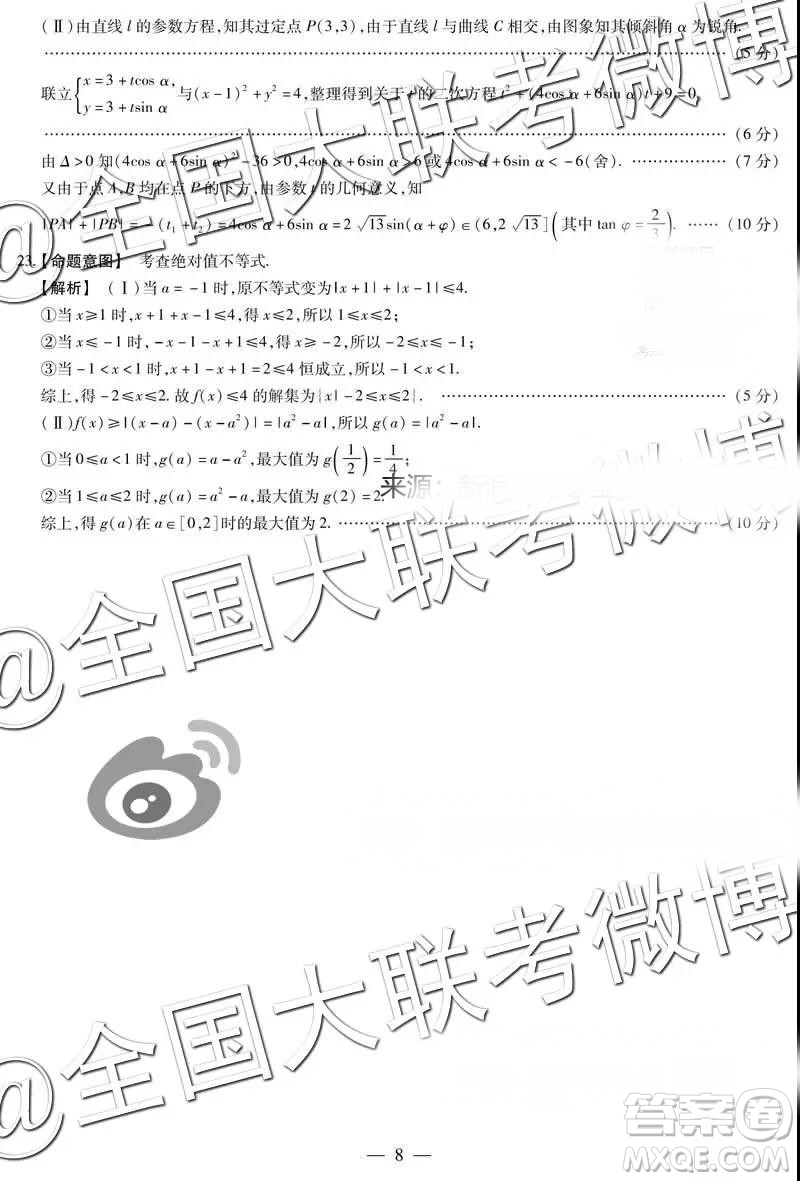 (Ⅱ)由直线 l 的参数方程,知其过定点 P(3,3),由于直线 l 与曲线 C 相交,由图象知其倾斜角 α 为锐角.
…… (5 分)
联立{x=3+tcos α, y=3+tsin α 与(x-1)²+y²=4,整理得到关于 t 的二次方程 t²+(4cos α+6sin α)t+9=0,
…… (6 分)
由 Δ>0 知(4cos α+6sin α)²-36>0,4cos α+6sin α>6 或 4cos α+6sin α<-6(舍). …… (7 分)
又由于点 A,B 均在点 P 的下方,由参数 t 的几何意义,知
|PA|+|PB|=-(t₁+t₂)=4cos α+6sin α=2√13sin(α+φ)∈(6,2√13](其中 tan φ=2/3). …… (10 分)
23.【命题意图】 考查绝对值不等式.
【解析】 (Ⅰ)当 a=-1 时,原不等式变为|x+1|+|x-1|≤4.
①当 x≥1 时,x+1+x-1≤4,得 x≤2,所以 1≤x≤2;
②当 x≤-1 时,-x-1-x+1≤4,得 x≥-2,所以 -2≤x≤-1;
③当 -1<x<1 时,x+1-x+1=2≤4 恒成立,所以 -1<x<1.
综上,得 -2≤x≤2. 故 f(x)≤4 的解集为{x|-2≤x≤2}. …… (5 分)
(Ⅱ)f(x)≥|(x-a)-(x-a²)|=|a²-a|,所以 g(a)=|a²-a|.
①当 0≤a<1 时,g(a)=a-a²,最大值为 g(1/2)=1/4;
②当 1≤a≤2 时,g(a)=a²-a,最大值为 g(2)=2.
来源:新浪
综上,得 g(a)在 a∈[0,2]时的最大值为 2. …… (10 分)
@全国大联考微博
@全国大联考微博
答案卷
— 8 —